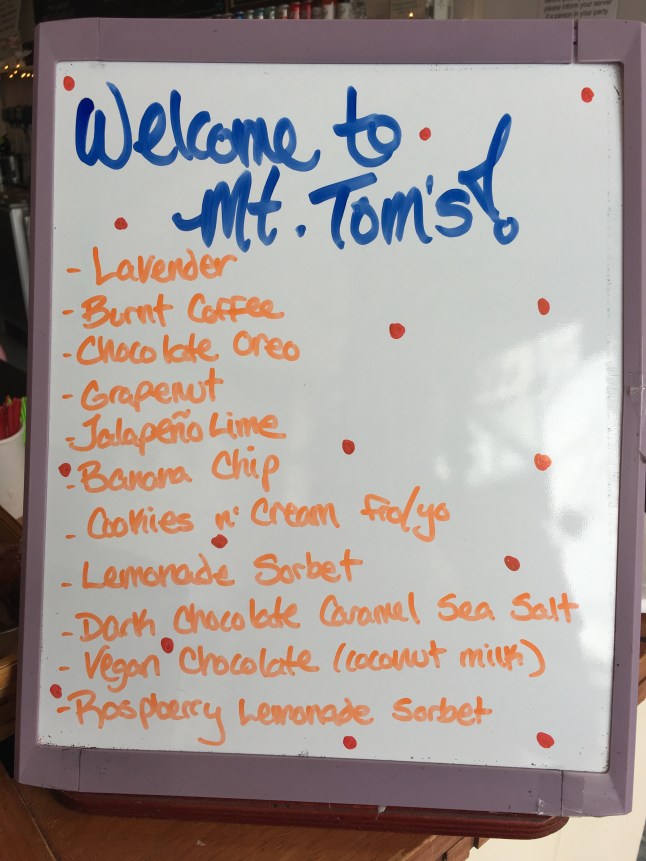 please inform your server
if a person in your party
Welcome to
Mt. Tom's!
- Lavender
- Burnt Coffee
- Chocolate Oreo
- Grapenut
- Jalapeño Lime
- Banana Chip
- Cookies n' Cream fro/yo
- Lemonade Sorbet
- Dark Chocolate Caramel Sea Salt
- Vegan Chocolate (coconut milk)
- Raspberry Lemonade Sorbet